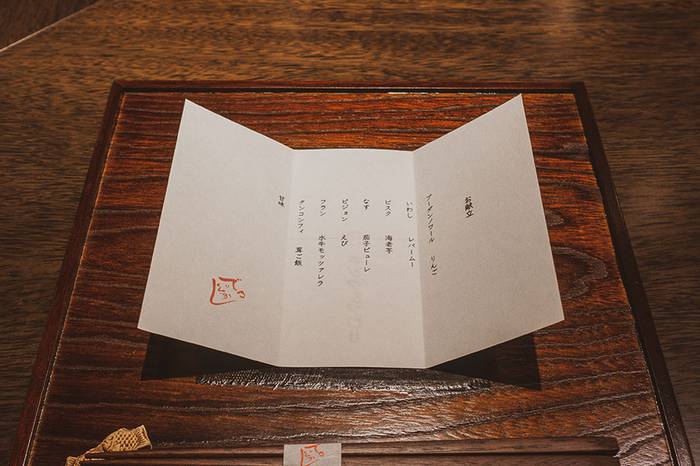 お献立
ブーダンノワール りんご
いわし レバームー
ビスク 海老芋
なす 茄子ピューレ
ピジョン えび
フラン 水牛モッツアレラ
タンコンフィ 茸ご飯
甘味